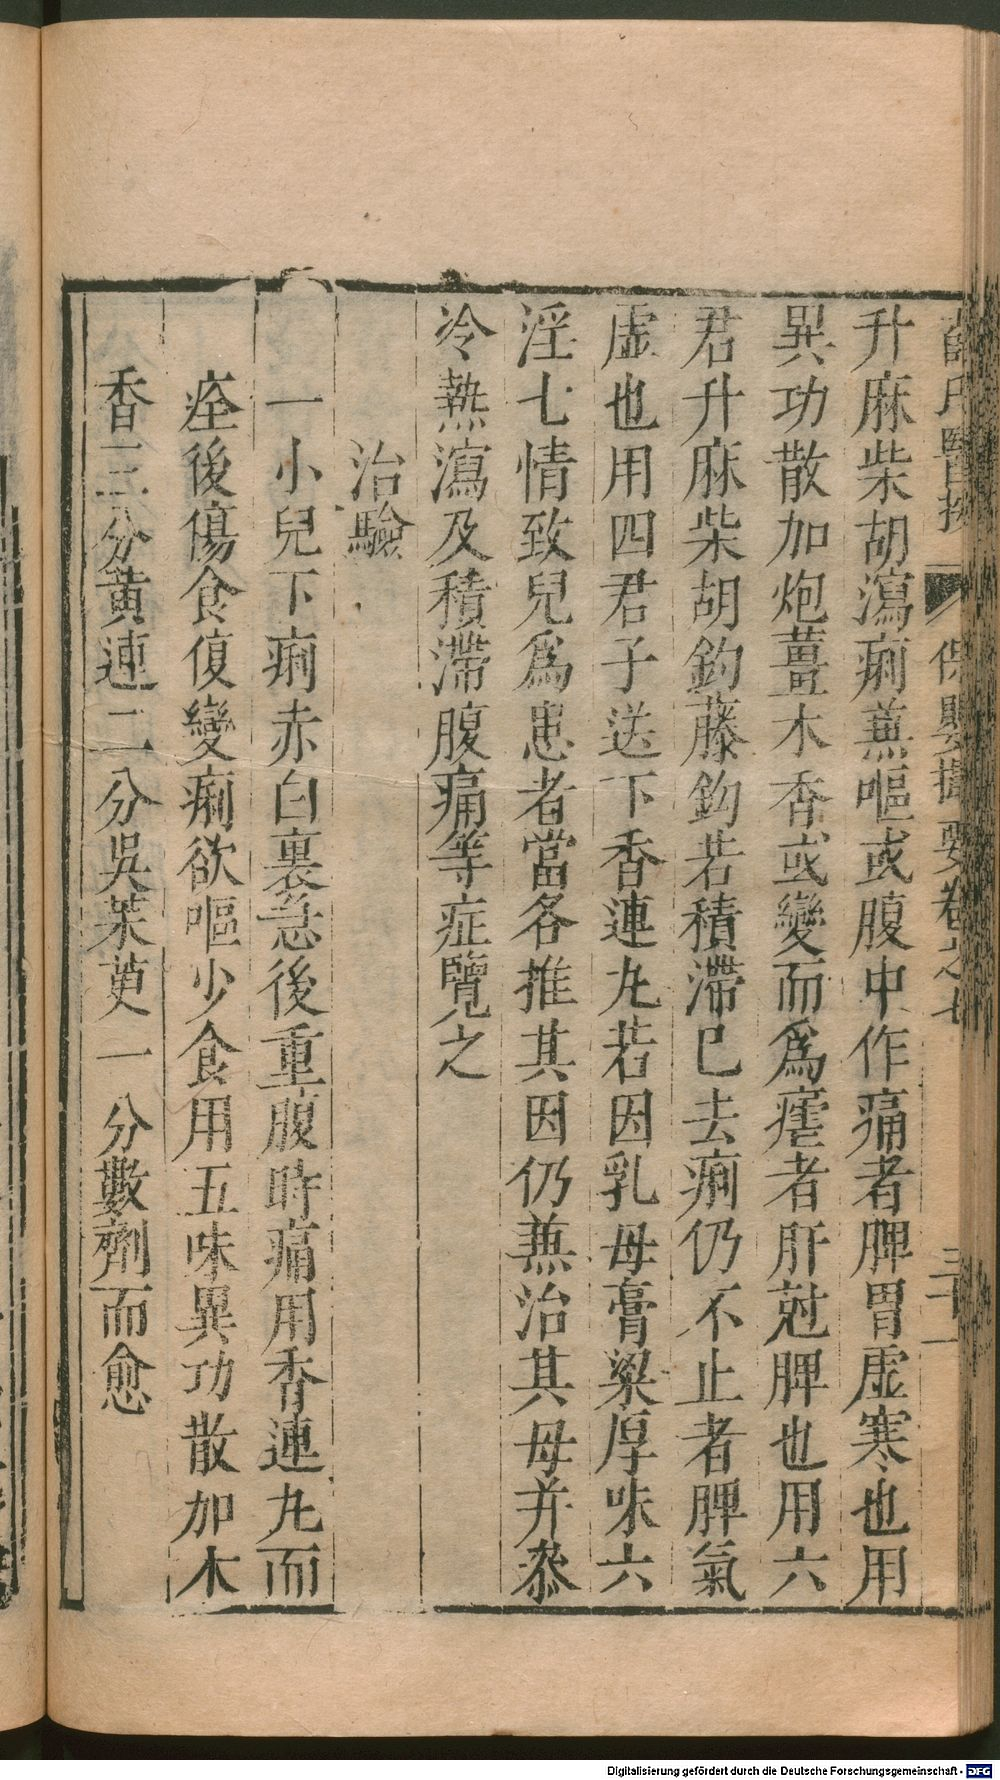 薛氏醫按 保嬰撮要卷之七 三十一
升麻柴胡瀉痢兼嘔或腹中作痛者脾胃虛寒也用
異功散加炮薑木香或變而爲瘧者肝尅脾也用六
君升麻柴胡鈎藤鈎若積滯已去痢仍不止者脾氣
虛也用四君子送下香連丸若因乳母膏粱厚味六
淫七情致兒爲患者當各推其因仍兼治其母并叅
冷熱瀉及積滯腹痛等症覽之
治驗
一小兒下痢赤白裏急後重腹時痛用香連丸而
痊後傷食復變痢欲嘔少食用五味異功散加木
香三分黃連二分吳茱萸一分數劑而愈
Digitalisierung gefördert durch die Deutsche Forschungsgemeinschaft - DFG